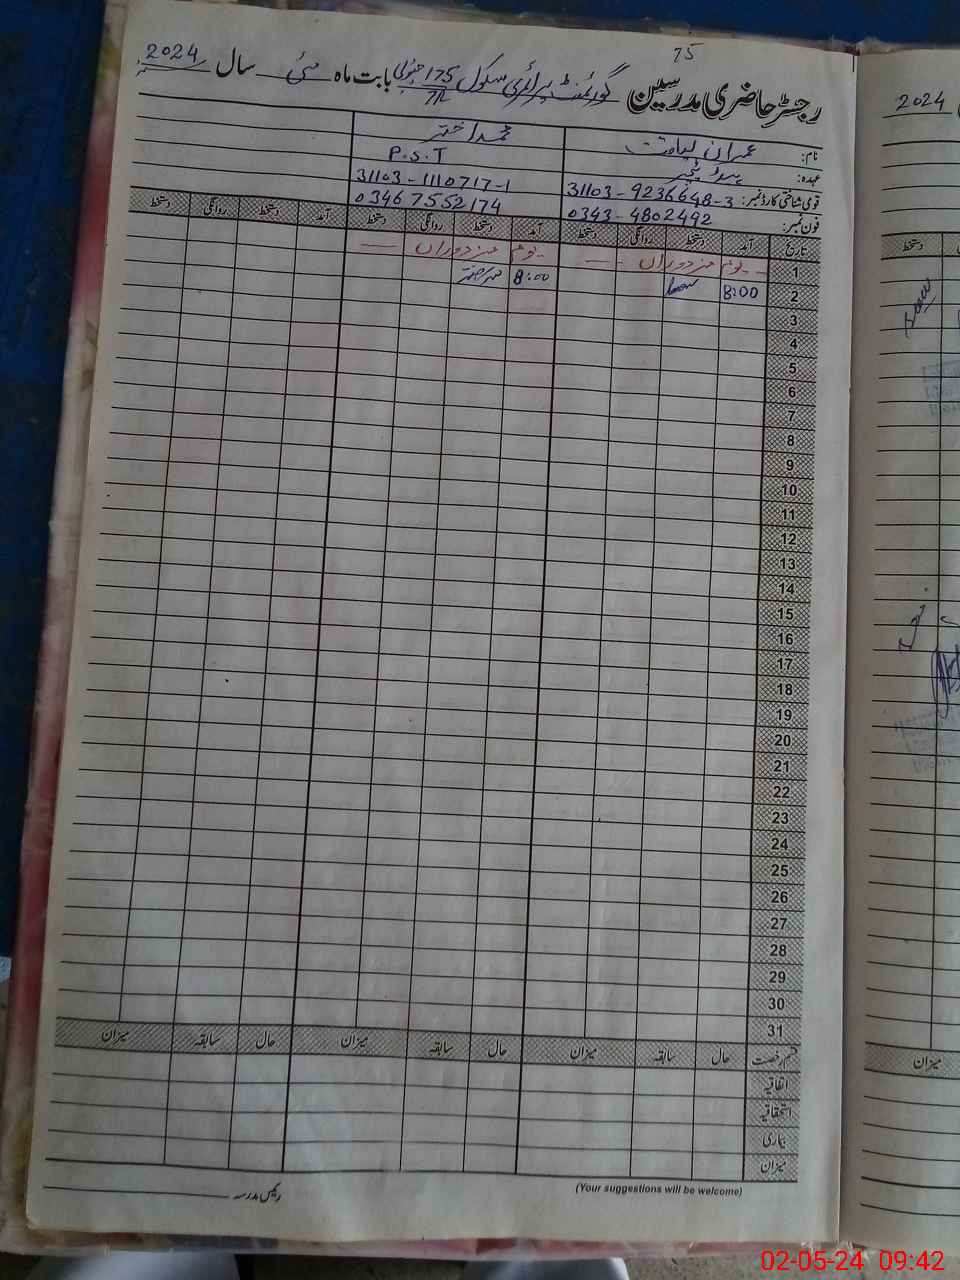 75
رجسٹر حاضری مدرسین گورنمنٹ پرائمری سکول 175 جنوبی بابت ماہ مئی سال 2024
7R
نام: عمران لیاقت محمد اختر
عہدہ: ہیڈ ٹیچر P.S.T
قومی شناختی کارڈ نمبر: 31103-9236648-3 31103-1110717-1
فون نمبر: 0343-4802492 03467552174
تاریخ آمد دستخط روانگی دستخط آمد دستخط روانگی دستخط آمد دستخط روانگی دستخط
1 یوم مزدوراں یوم مزدوراں
2 8:00 8:00
3
4
5
6
7
8
9
10
11
12
13
14
15
16
17
18
19
20
21
22
23
24
25
26
27
28
29
30
31
قسم رخصت حال سابقہ میزان حال سابقہ میزان حال سابقہ میزان
اتفاقیہ
استحقاقیہ
بیماری
میزان
(Your suggestions will be welcome) رئیس مدرسہ
2024
دستخط
میزان
02-05-24 09:42